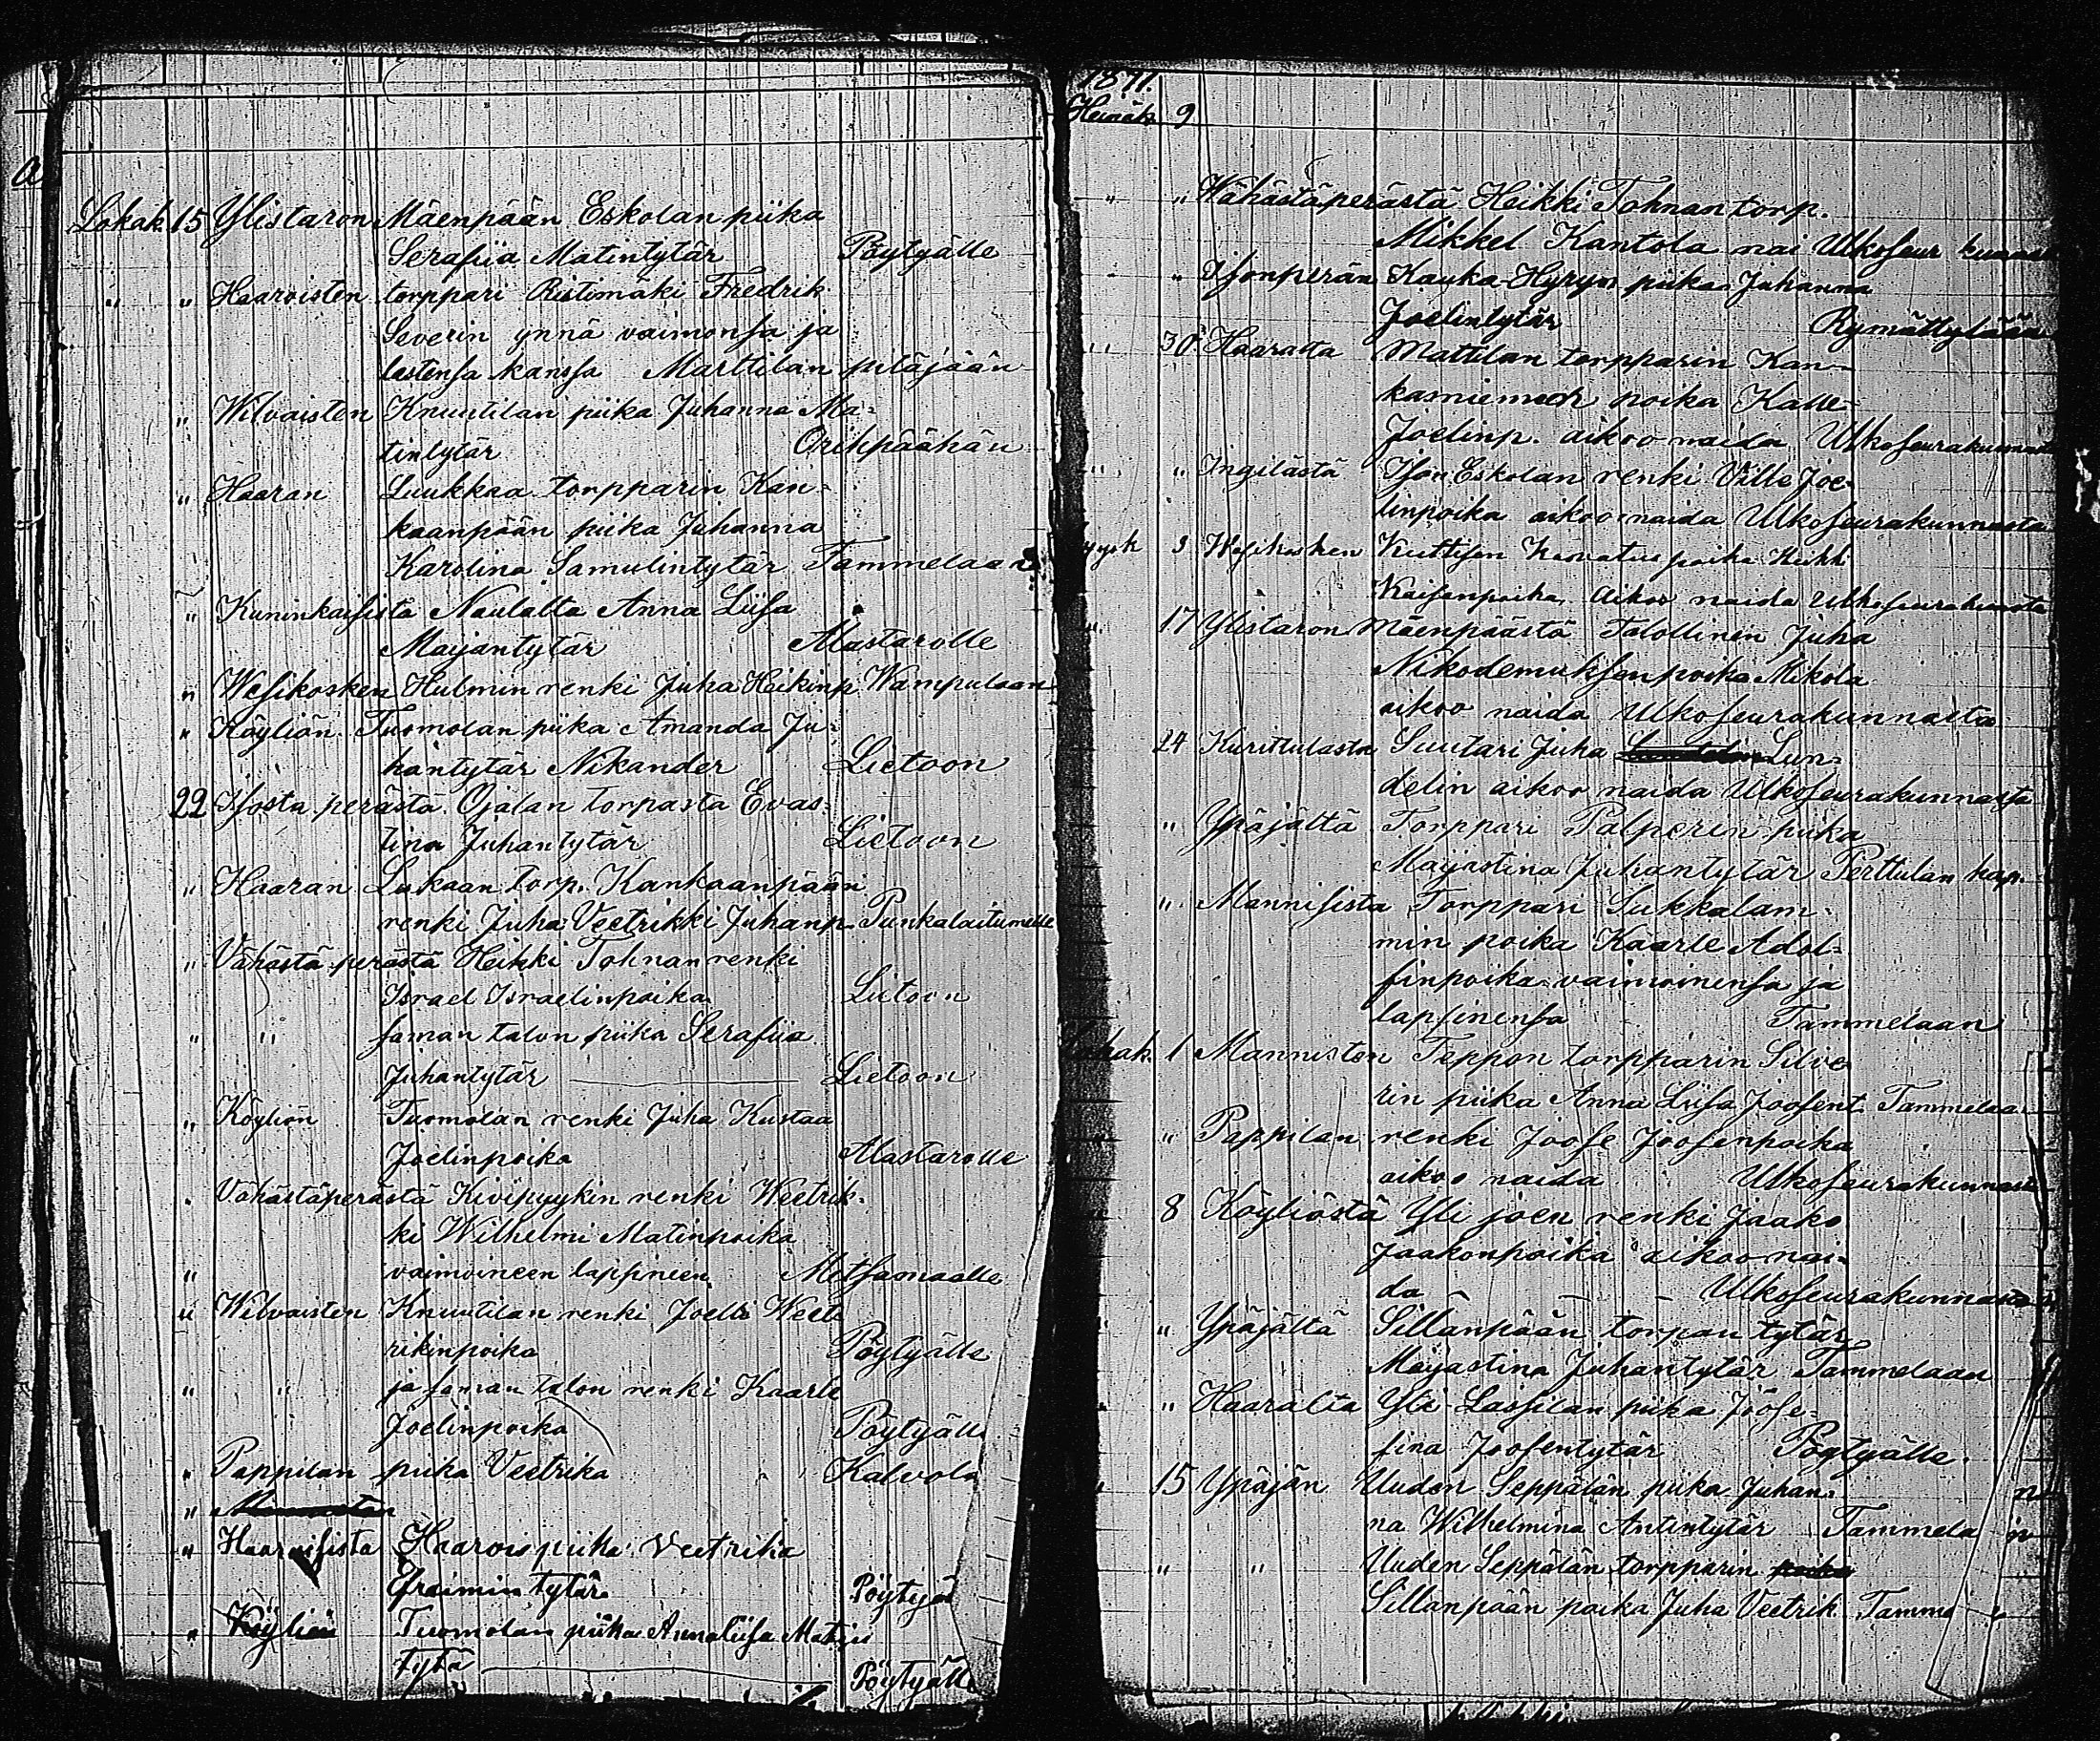 Lokak. 15 Ylistaron Mäenpään Eskolan piika
Serafiia Matintytär Pöytyälle
" " Haaroisten torppari Ristimäki Fredrik
Severin ynnä vaimonsa ja
lastensa kanssa Marttilan pitäjään
" Wilvaisten Knuutilan piika Juhanna Ma-
tintytär Orihpäähän
" Haaran Luukkaa torpparin Kan-
kaanpään piika Juhanna
Karolina Samulintytär Tammelaan
" Kuninkaisista Naulalta Anna Liisa
Maijantytär Alastarolle
" Wesikosken Hulmin renki Juha Heikinp. Wampulaan
" Köyliön Tuomolan piika Amanda Ju-
hantytär Nikander Lietoon
22 Isosta perästä Ojalan torpasta Evas-
tina Juhantytär Lietoon
" Haaran Lukaan torp. Kankaanpään
renki Juha Veetrikki Juhanp. Punkalaitumelle
" Vähästä perästä Heikki Tohnan renki
Israel Israelinpoika Lietoon
" " saman talon piika Serafiia
Juhantytär Lietoon
" Köyliön Tuomolan renki Juha Kustaa
Joelinpoika Alastarolle
" Vähästäperästä Kivipyykin renki Weetrik-
ki Wilhelmi Matinpoika
" vaimoineen lapsineen Metsamaalle
" Wilvaisten Knuutilan renki Joelli Weet
rikinpoika Pöytyälle
" " ja saman talon renki Kaarle
" Joelinpoika Pöytyälle
" Pappilan piika Veetrika Kalvola
"
" Haaroisista Haarois piika Veetrika
Efraimin tytär Pöytyäl
" Köyliön Tuomolan piika Annaliisa Matin
tytä Pöytyälle
1871.
Heinäk. 9
" " Wähästäperästä Heikki Tohnan torp.
Mikkel Kantola nai Ulkoseur kunnast
" Isonperän Kauka-Hyryn piika Juhanna
Joelintytär Rymättylään
" 30 Haaralta Mattilan torpparin Kan-
kasniemen poika Kalle
Joelinp. aikoo naida Ulkoseurakunnast
" " Ingilästä Ison Eskolan renki Ville Joe-
linpoika aikoo naida Ulkoseurakunnasta
Syysk 3 Wesikosken poika Heikki
aikoo naida Ulkoseurakunnasta
" 17 Ylistaron Mäenpäästä Talollinen Juha
Nikodemuksenpoika Mikola
aikoo naida Ulkoseurakunnasta
24 Kurittulasta Suutari Juha Lun-
delin aikoo naida Ulkoseurakunnasta
" Ypäjältä Torppari Palperin piika
Maijastina Juhantytär Perttulan kap.
" Mannisista Torppari Sukkalam-
min poika Kaarle Adol-
finpoika vaimoinensa ja
lapsinensa Tammelaan
Lokak. 1 Manniston Teppon torpparin Silve
rin piika Anna Liisa Joosent. Tammelaa
" " Pappilan renki Joose Joosenpoika
aikoo naida Ulkoseurakunnast
8 Köyliöstä Yli joen renki Jaako
Jaakonpoika aikoo nai-
da Ulkoseurakunnasta
" Ypäjältä Sillanpään torpan tytär
Maijastina Juhantytär Tammelaan
" " Haaralta Yli-Lassilan piika Joose-
fina Joosentytär Pöytyälle.
" 15 Ypäjän Uuden Seppälän piika Juhan-
na Wilhelmina Antintytär Tammela
" " Uuden Seppälän torpparin
Sillanpään poika Juha Veetrik Tamme